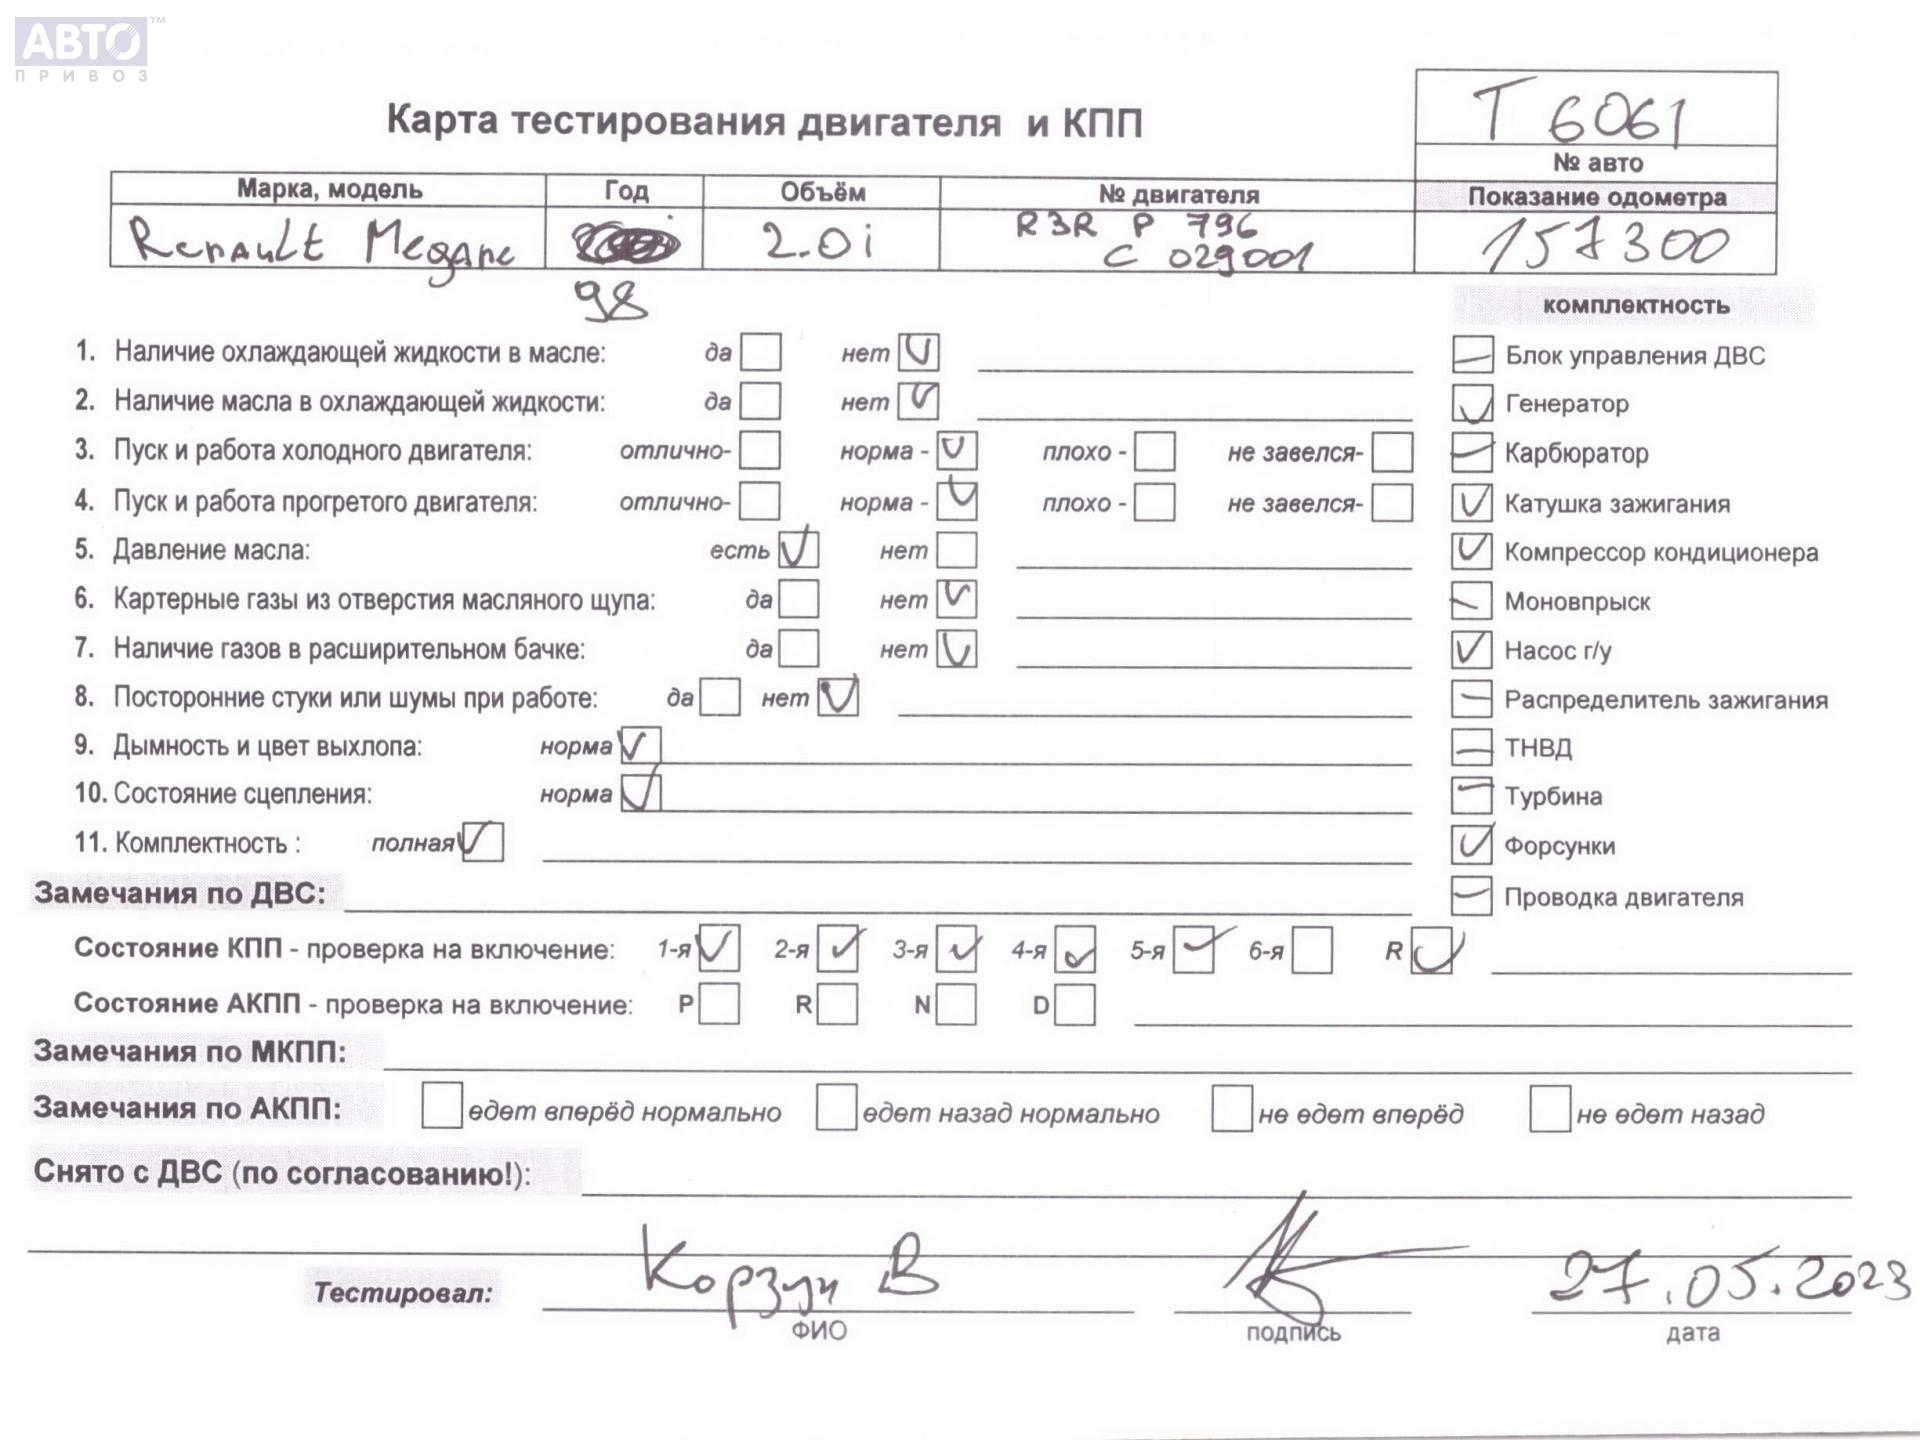 АВТО™
ПРИВОЗ
Т 6061
№ авто
Карта тестирования двигателя и КПП
Марка, модель Год Объём № двигателя Показание одометра
Renault Megane 2.0i R3R P 796 157300
C 029001
98
комплектность
1. Наличие охлаждающей жидкости в масле: да нет Блок управления ДВС
2. Наличие масла в охлаждающей жидкости: да нет Генератор
3. Пуск и работа холодного двигателя: отлично- норма - плохо - не завелся- Карбюратор
4. Пуск и работа прогретого двигателя: отлично- норма - плохо - не завелся- Катушка зажигания
5. Давление масла: есть нет Компрессор кондиционера
6. Картерные газы из отверстия масляного щупа: да нет Моновпрыск
7. Наличие газов в расширительном бачке: да нет Насос г/у
8. Посторонние стуки или шумы при работе: да нет Распределитель зажигания
9. Дымность и цвет выхлопа: норма ТНВД
10. Состояние сцепления: норма Турбина
11. Комплектность : полная Форсунки
Замечания по ДВС: Проводка двигателя
Состояние КПП - проверка на включение: 1-я 2-я 3-я 4-я 5-я 6-я R
Состояние АКПП - проверка на включение: P R N D
Замечания по МКПП:
Замечания по АКПП: едет вперёд нормально едет назад нормально не едет вперёд не едет назад
Снято с ДВС (по согласованию!):
Тестировал: Корзун В 27.05.2023
ФИО подпись дата